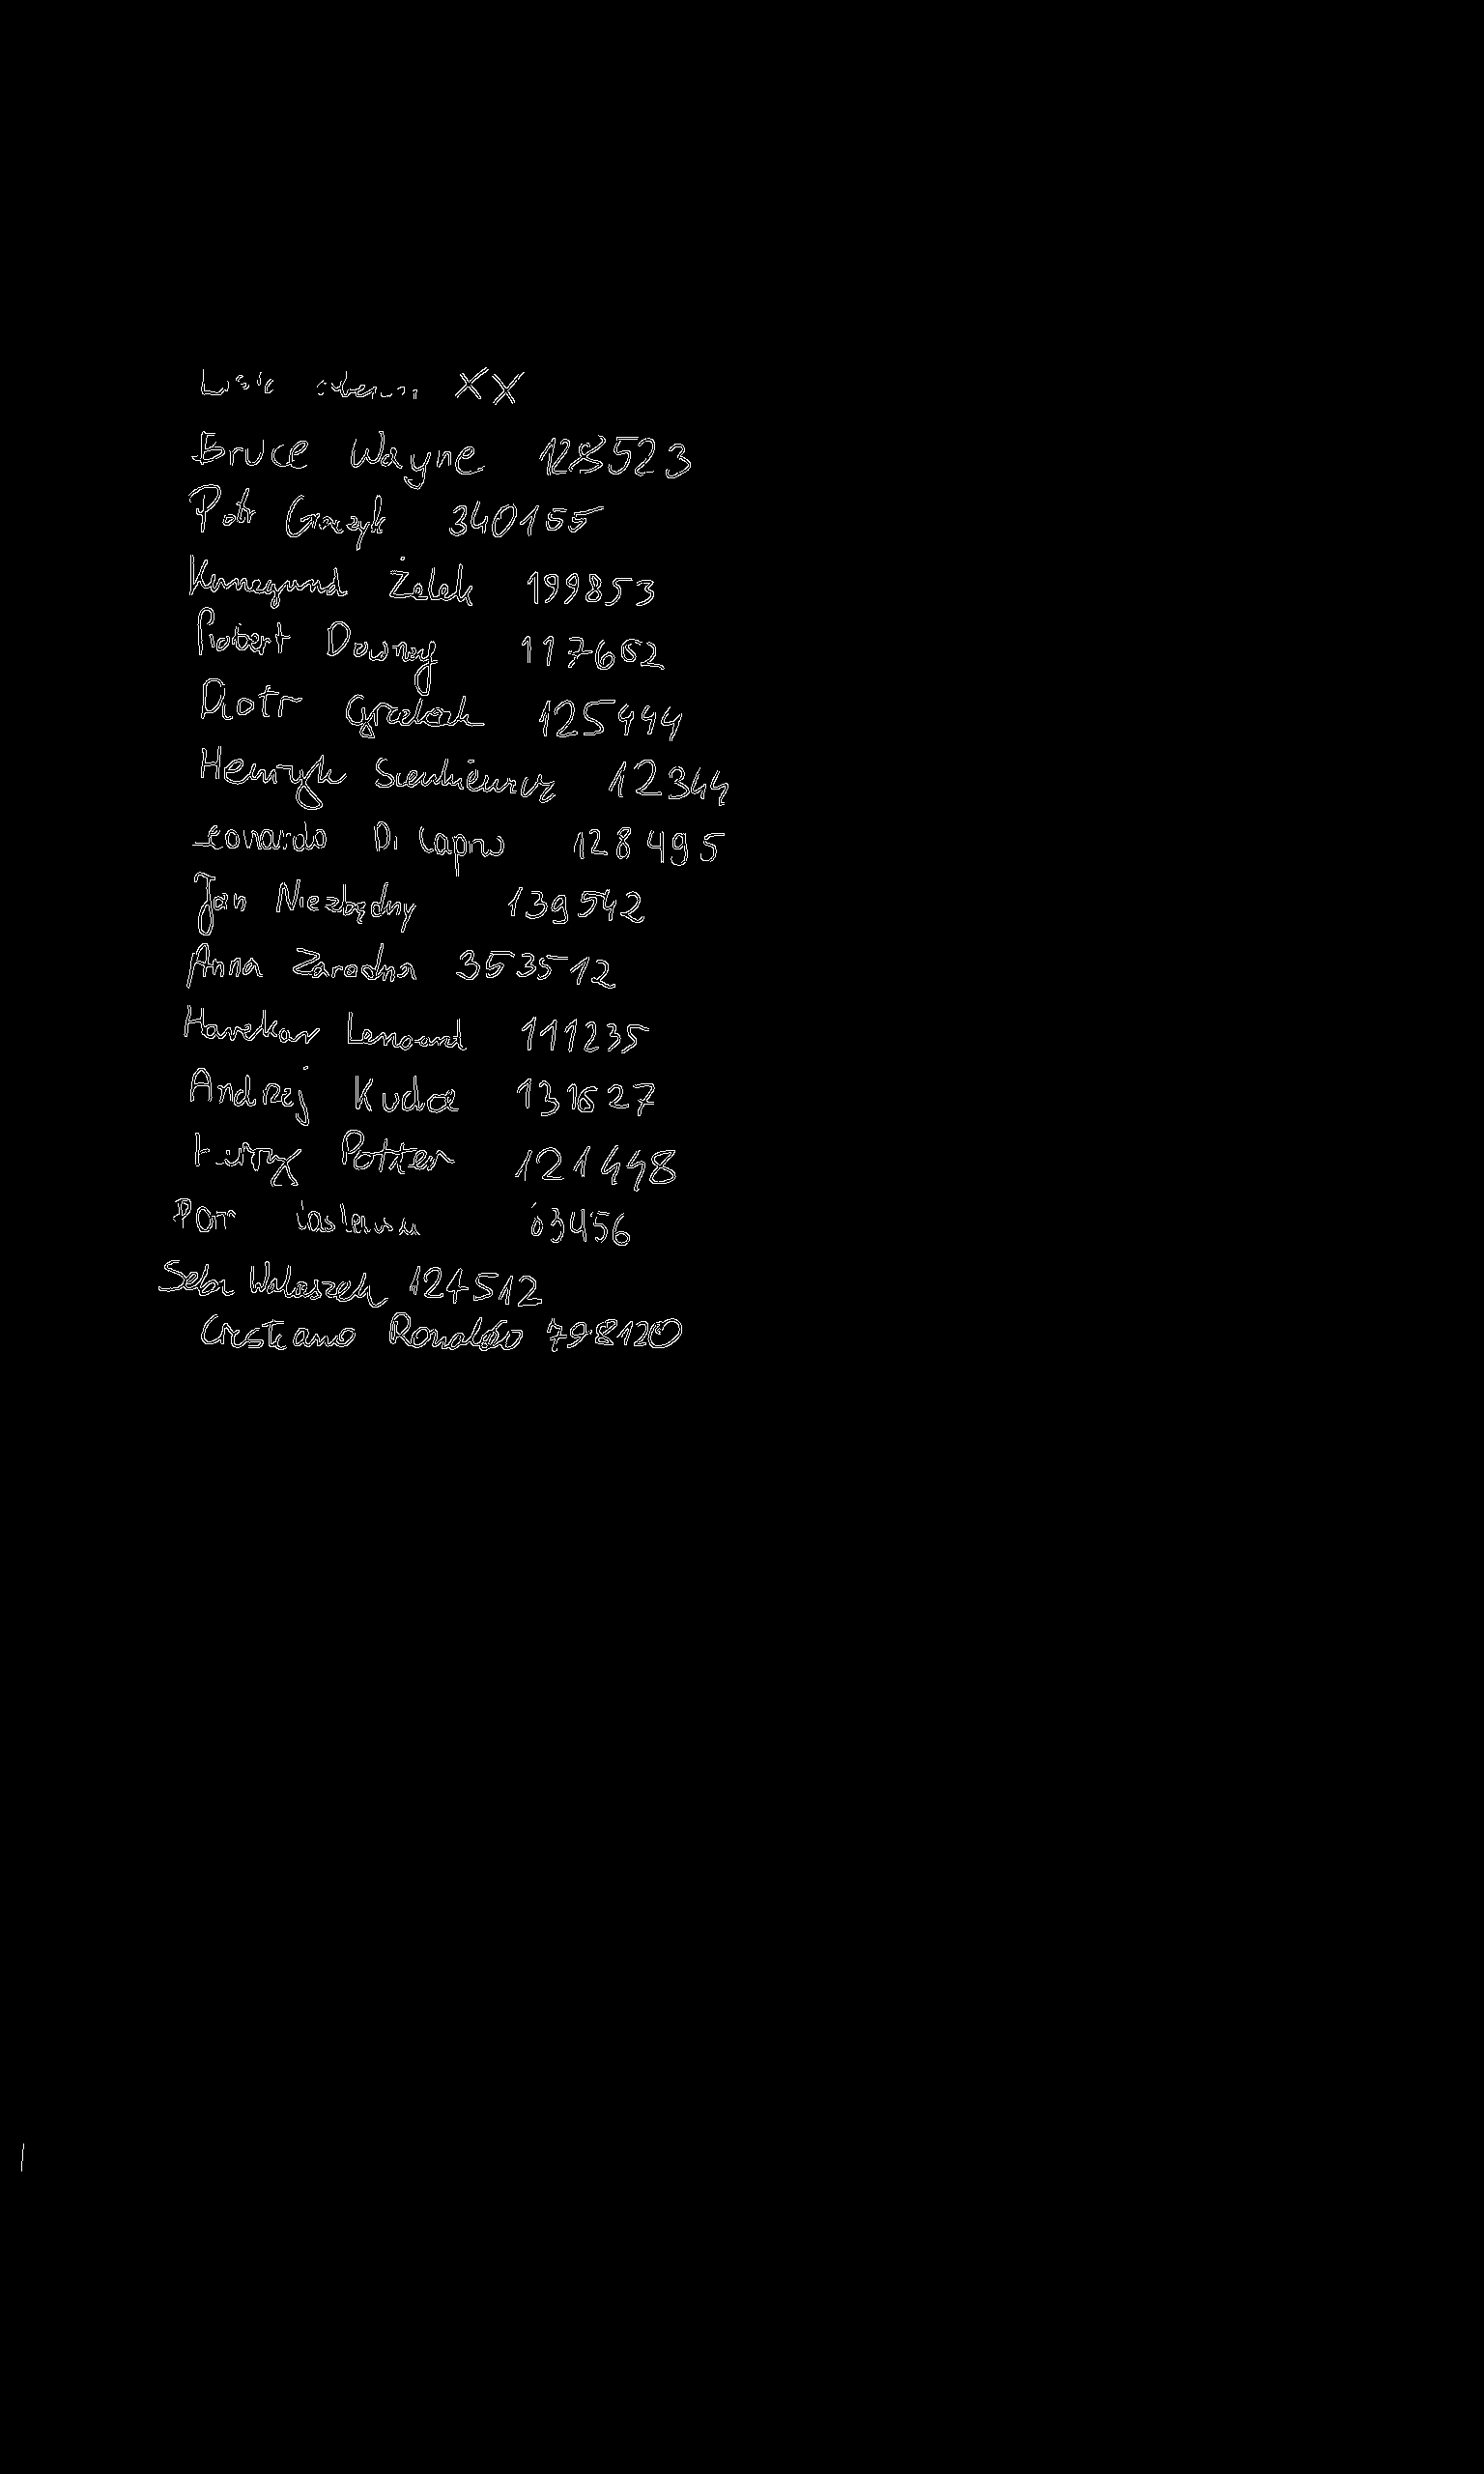 XX
Bruce Wayne 128523
Piotr Graczyk 340155
Kunegund Żelek 199853
Robert Downey 117652
Piotr 125444
Henryk Sienkiewicz 12344
Leonardo Di Caprio 128495
Jan Niezbędny 139542
Anna Zaradna 353512
Lennard 111235
Andrzej Kuda 131627
Potter 121448
03456
Seba Walaszek 124512
Cristiano Ronaldo 798120